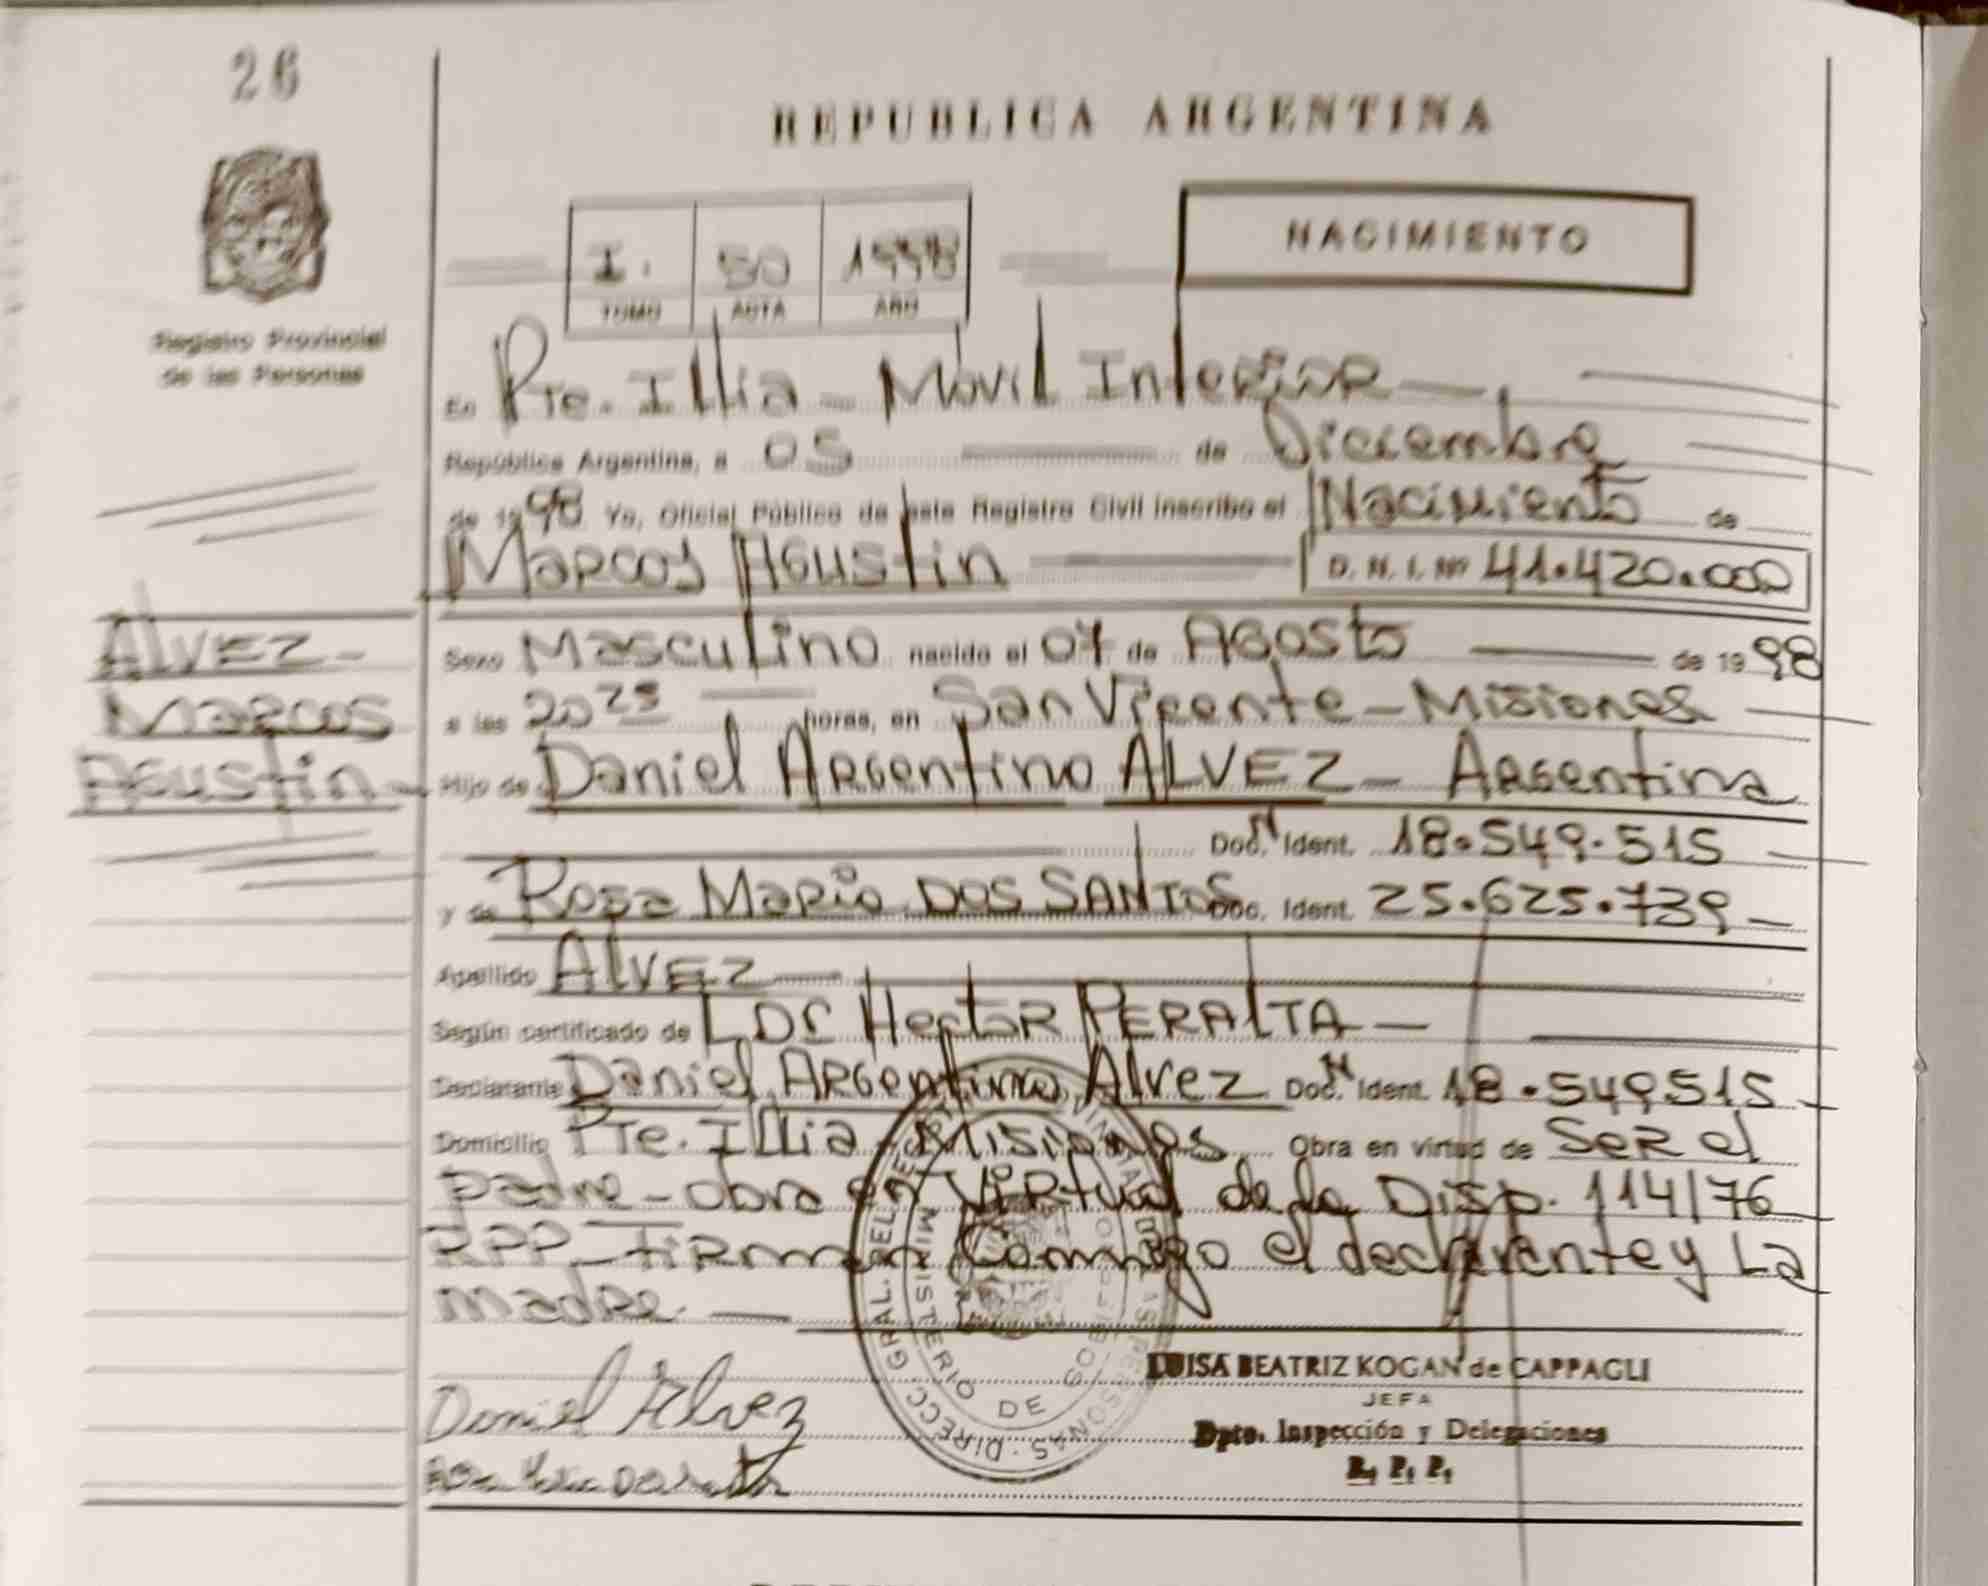 26
REPUBLICA ARGENTINA
NACIMIENTO
I. 50 1998
TOMO ACTA AÑO
Registro Provincial
de las Personas
En Pte. Illia - Movil Interior
República Argentina, a 05 de Diciembre
de 1998 Yo, Oficial Público de este Registro Civil inscribo el Nacimiento de
Marcos Agustin D. N. I. Nº 41.420.000
Alvez -
Marcos
Agustin -
Sexo Masculino nacido el 07 de Agosto de 1998
a las 20 25 horas, en San Vicente - Misiones
Hijo de Daniel Argentino ALVEZ - Argentina
Doc. N Ident. 18.549.515
y de Rosa Maria DOS SANTOS Doc. Ident. 25.625.739
Apellido Alvez
Según certificado de Hector PERALTA -
Declarante Daniel Argentino Alvez Doc. N Ident. 18.549515
Domicilio Pte. Illia - Misiones Obra en virtud de Ser el
padre - obra en virtud de la Disp. 114/76
RPP - Firman Conmigo el declarante y La
madre
Daniel Alvez
DIRECC. GRAL. DEL REG. PERSONAS
MINISTERIO DE GOBIERNO
LUISA BEATRIZ KOGAN de CAPPAGLI
JEFA
Dpto. Inspección y Delegaciones
R. P. P.